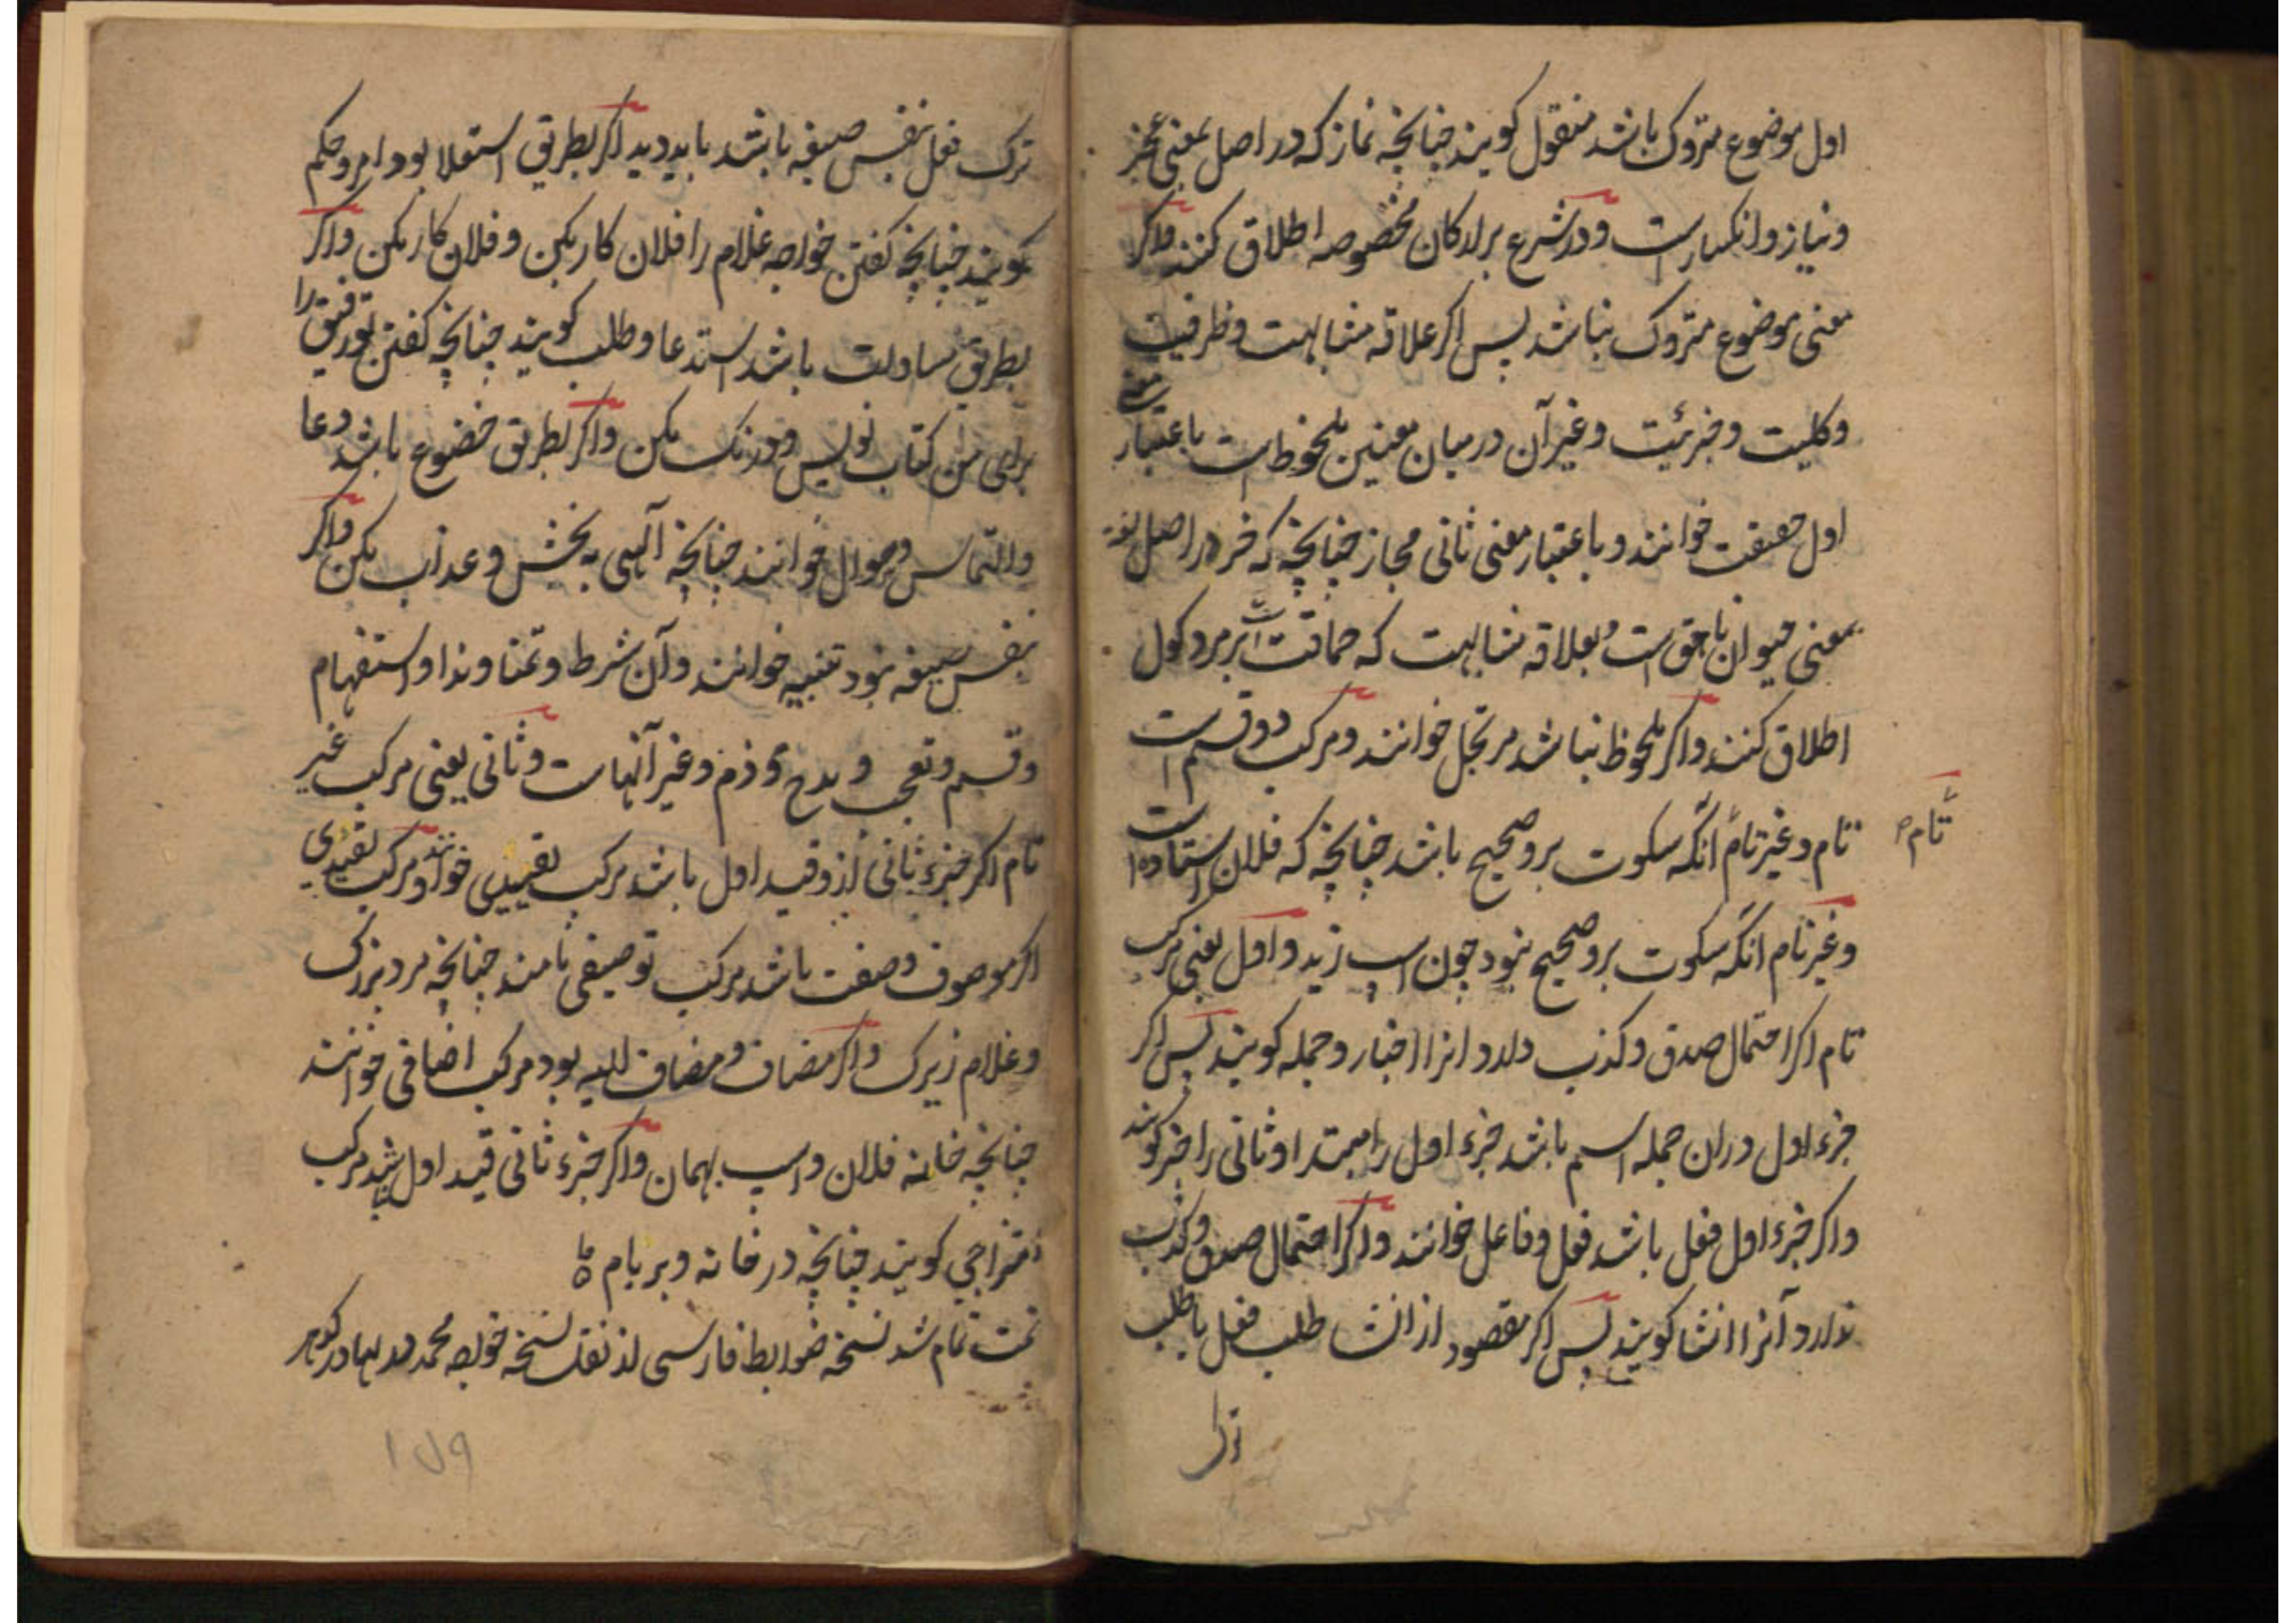 اول موضوع متروک باشد منقول کویند چنانچه نماز که در اصل بمعنی عجز
ونیاز وانکسارست ودر شرع برارکان مخصوصه اطلاق کنند واکر
معنی موضوع متروک نباشد پس اکر علاقه مشابهت وظرفیت
وکلیت وجزئیت وغیر آن درمیان معنین ملحوظ است باعتبار معنی
اول حقیقت خوانند وباعتبار معنی ثانی مجاز چنانچه که خر در اصل لغة
بمعنی حیوان ناهق است وبعلاقه مشابهت که حماقت است بر مرد کول
اطلاق کنند واکر ملحوظ نباشد مرتجل خوانند ومرکب دو قسم است
تام وغیر تام آنکه سکوت برو صحیح باشد چنانچه که فلان استاده است
تام
وغیر تام آنکه سکوت برو صحیح نبود چون اسپ زید واول یعنی مرکب
تام اکر احتمال صدق وکذب دارد انرا اخبار وجمله کویند پس اکر
جزء اول دران جمله اسم باشد جزء اول را مبتدا وثانی را خبر کویند
واکر جزء اول فعل باشد فعل وفاعل خوانند واکر احتمال صدق وکذب
ندارد آنرا انشا کویند پس اکر مقصود از انشا طلب فعل یا طلب
ترک
ترک فعل بنفس صیغه باشد باید دید اکر بطریق استعلا بود امر وحکم
کویند چنانچه کفتن خواجه غلام را فلان کار بکن وفلان کار مکن واکر
بطریق مساوات باشد استدعا وطلب کویند چنانچه کفتن تو رفیق را
برای من کتاب نویس ودرنک مکن واکر بطریق خضوع باشد دعا
والتماس وسوال خوانند چنانچه آلهی به بخش وعذاب مکن واکر
بنفس صیغه نبود تنبیه خوانند وآن شرط وتمنا وندا واستفهام
وقسم وتعجب ومدح وذم وغیر آنهاست وثانی یعنی مرکب غیر
تام اکر جزء ثانی ازو قید اول باشد مرکب تقییدی خوانند ومرکب تقییدی
اکر موصوف وصفت باشد مرکب توصیفی نامند چنانچه مرد بزرک
وغلام زیرک واکر مضاف ومضاف الیه بود مرکب اضافی خوانند
چنانچه خانه فلان واسپ بهمان واکر جزء ثانی قید اول نباشد مرکب
امتزاجی کویند چنانچه در خانه وبر بام
تمت تمام شد نسخه ضوابط فارسی از نقل نسخه خواجه محمد